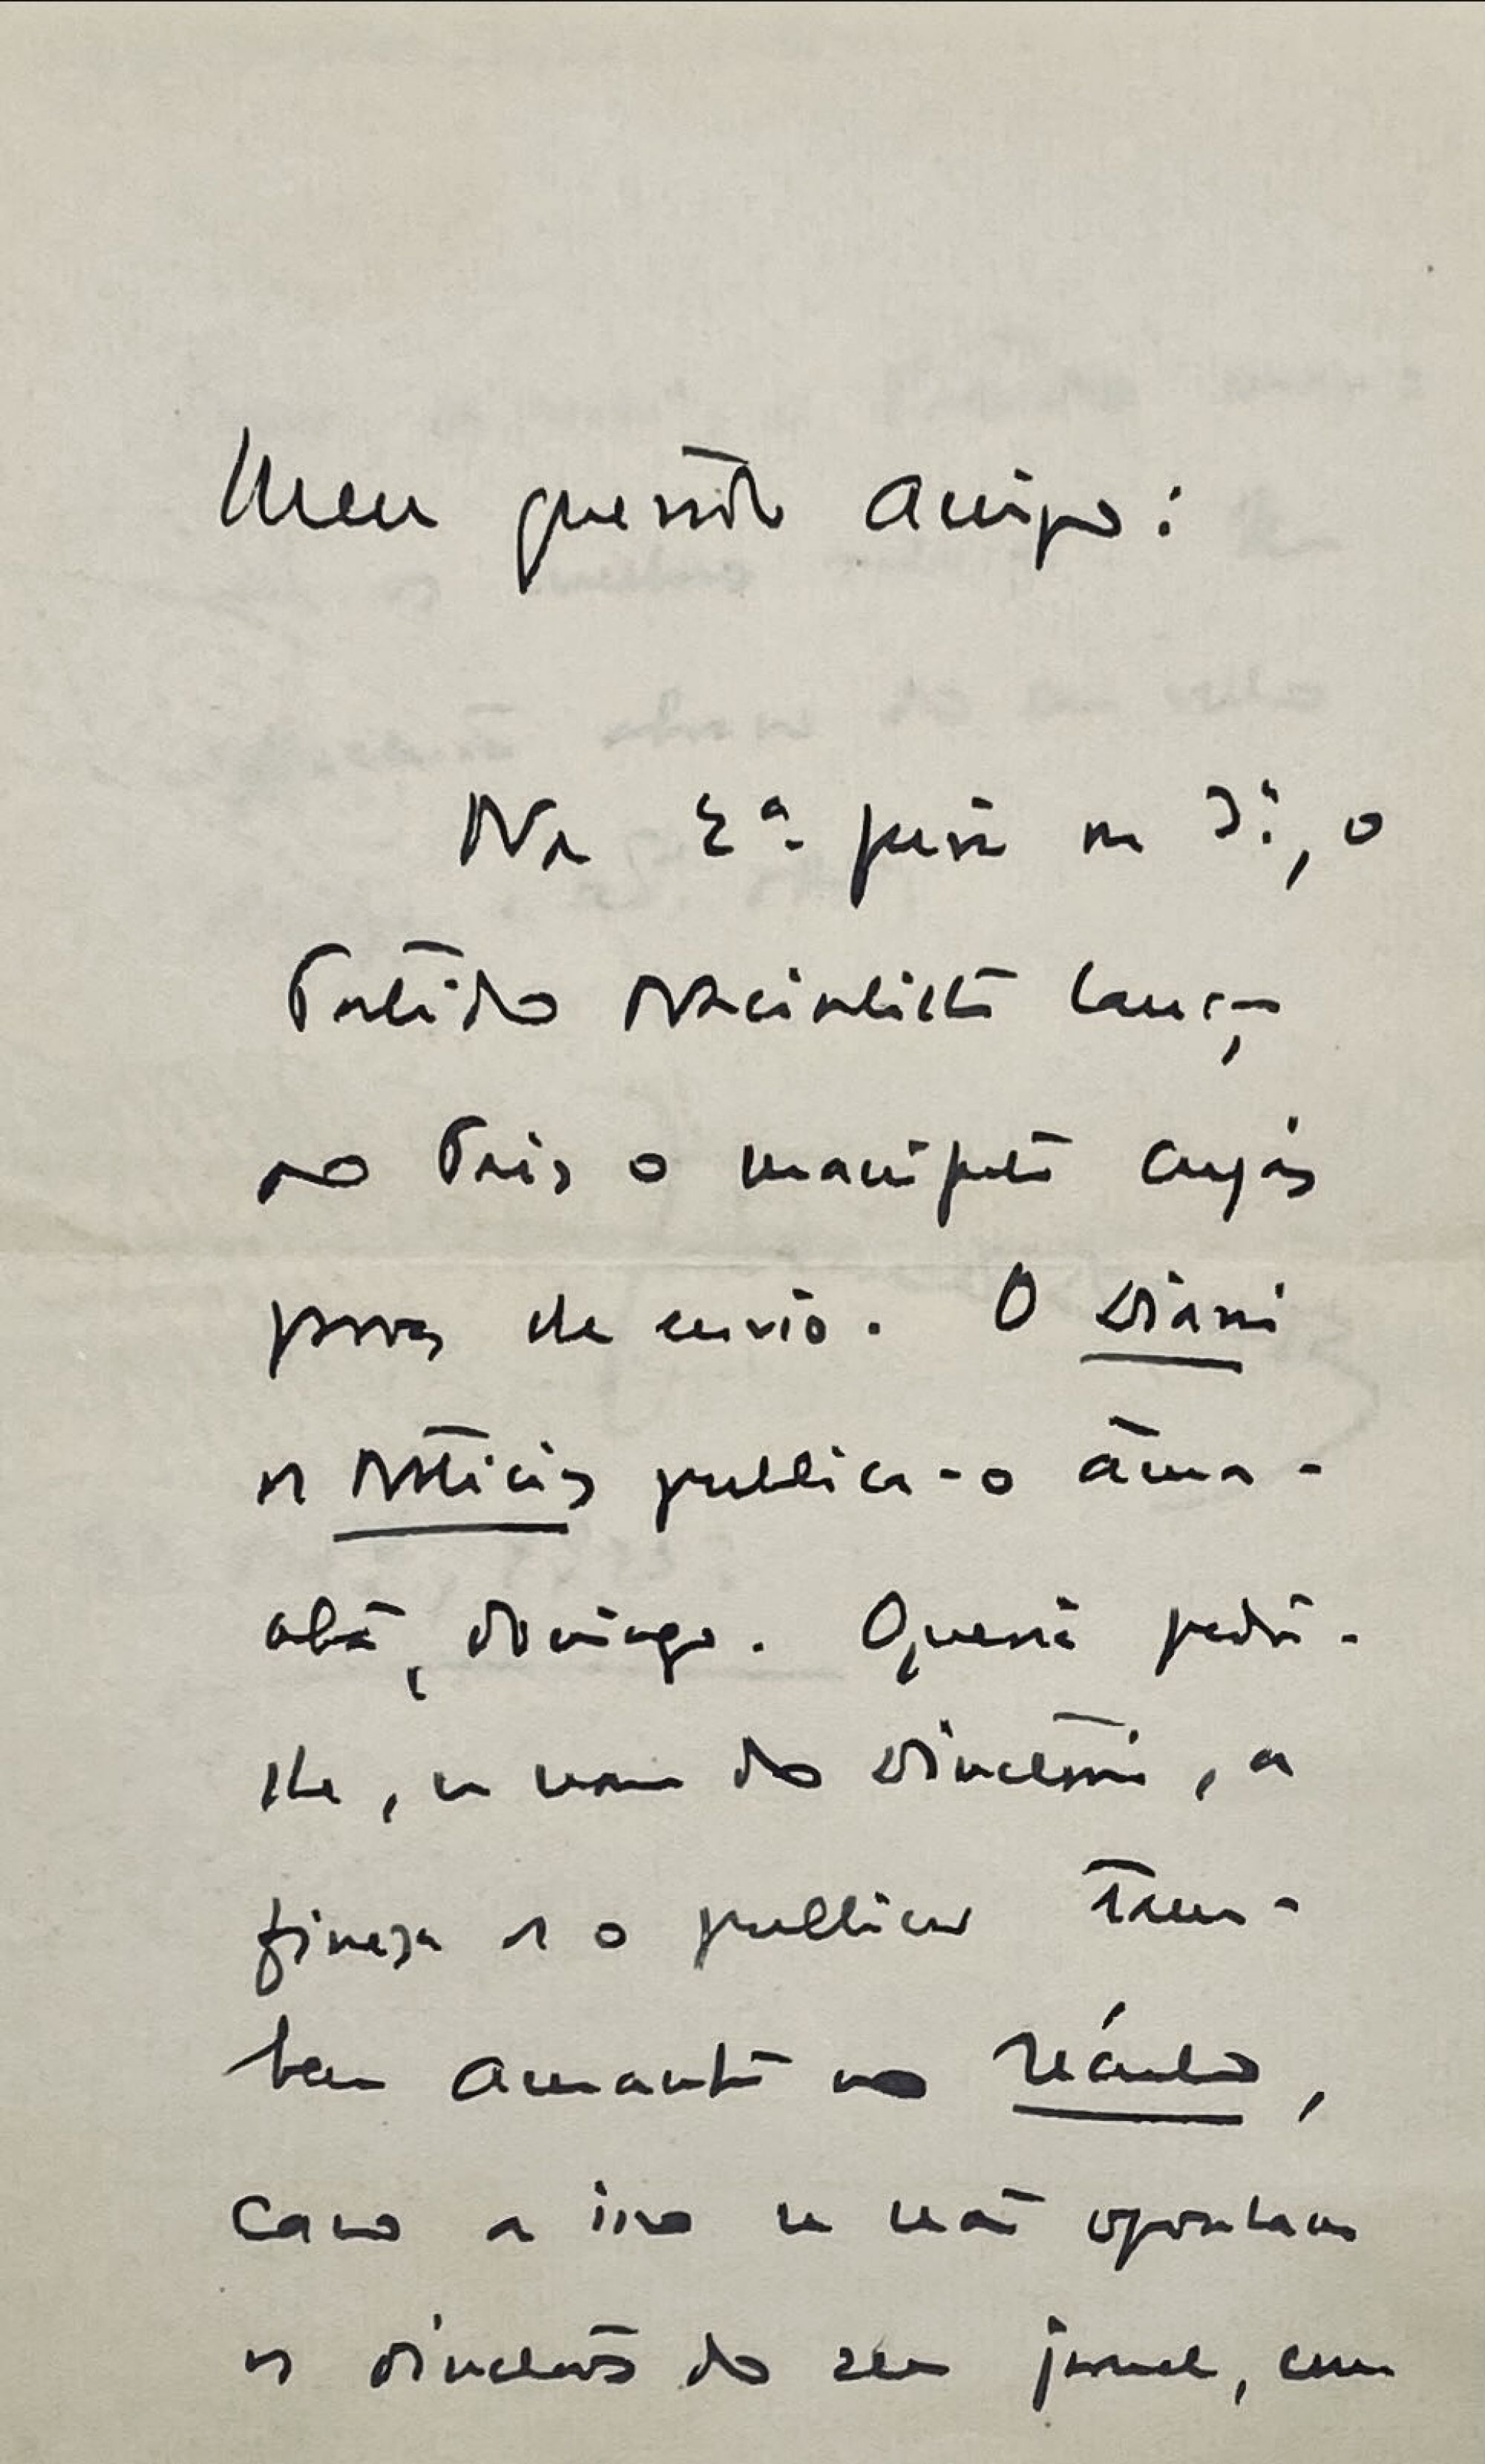 Meu querido Amigo:
Na 2ª feira ou 3ª, o
Partido Nacionalista lança
ao Paiz o manifesto cujas
provas lhe envio. O Diario
de Noticias publica-o áma-
nhã, domingo. Queria pedir-
lhe, em nome do Directorio, a
fineza de o publicar tam-
bem amanhã no Século,
caso a isso se não oponham
os directores do seu jornal, com